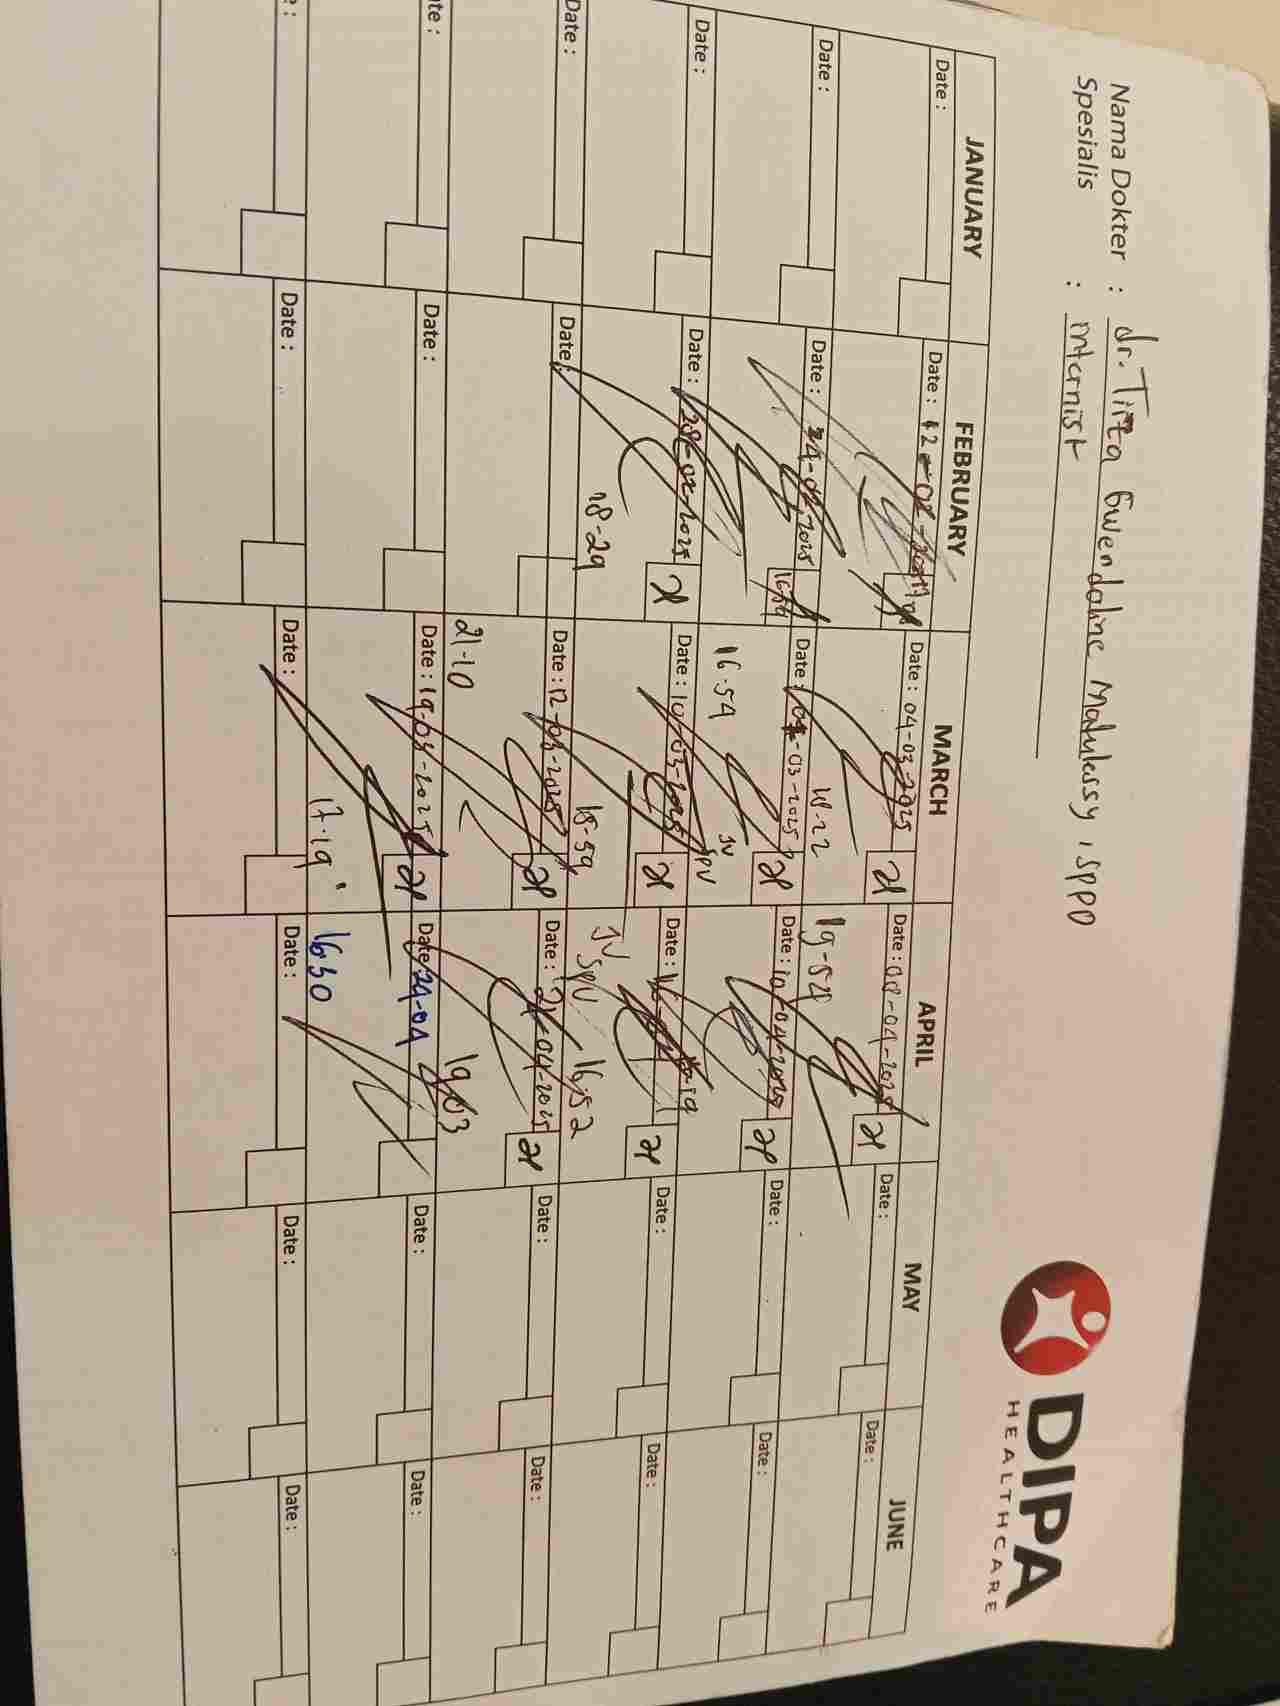 Nama Dokter : dr. Tirza Gwendoline Matulessy, SpPD
Spesialis : internist
DIPA
HEALTHCARE
JANUARY FEBRUARY MARCH APRIL MAY JUNE
Date : Date : 12-02- Date : 04-03-2025 Date : 08-04-2025 Date : Date :
18-22 19-52
Date : Date : 24-02-2025 Date : -03-2025 Date : 10-04-2025 Date : Date :
16.54 JV SPV
Date : Date : 28-02-2025 Date : 10-03-2025 Date : Date : Date :
18-29 18-59 JV SPV 16.52
Date : Date : Date : 12-03-2025 Date : 21-04-2025 Date : Date :
21-10 19.03
Date : Date : Date : 19-03-2025 Date : 24-04 Date : Date :
17.19 1630
Date : Date : Date : Date : Date :